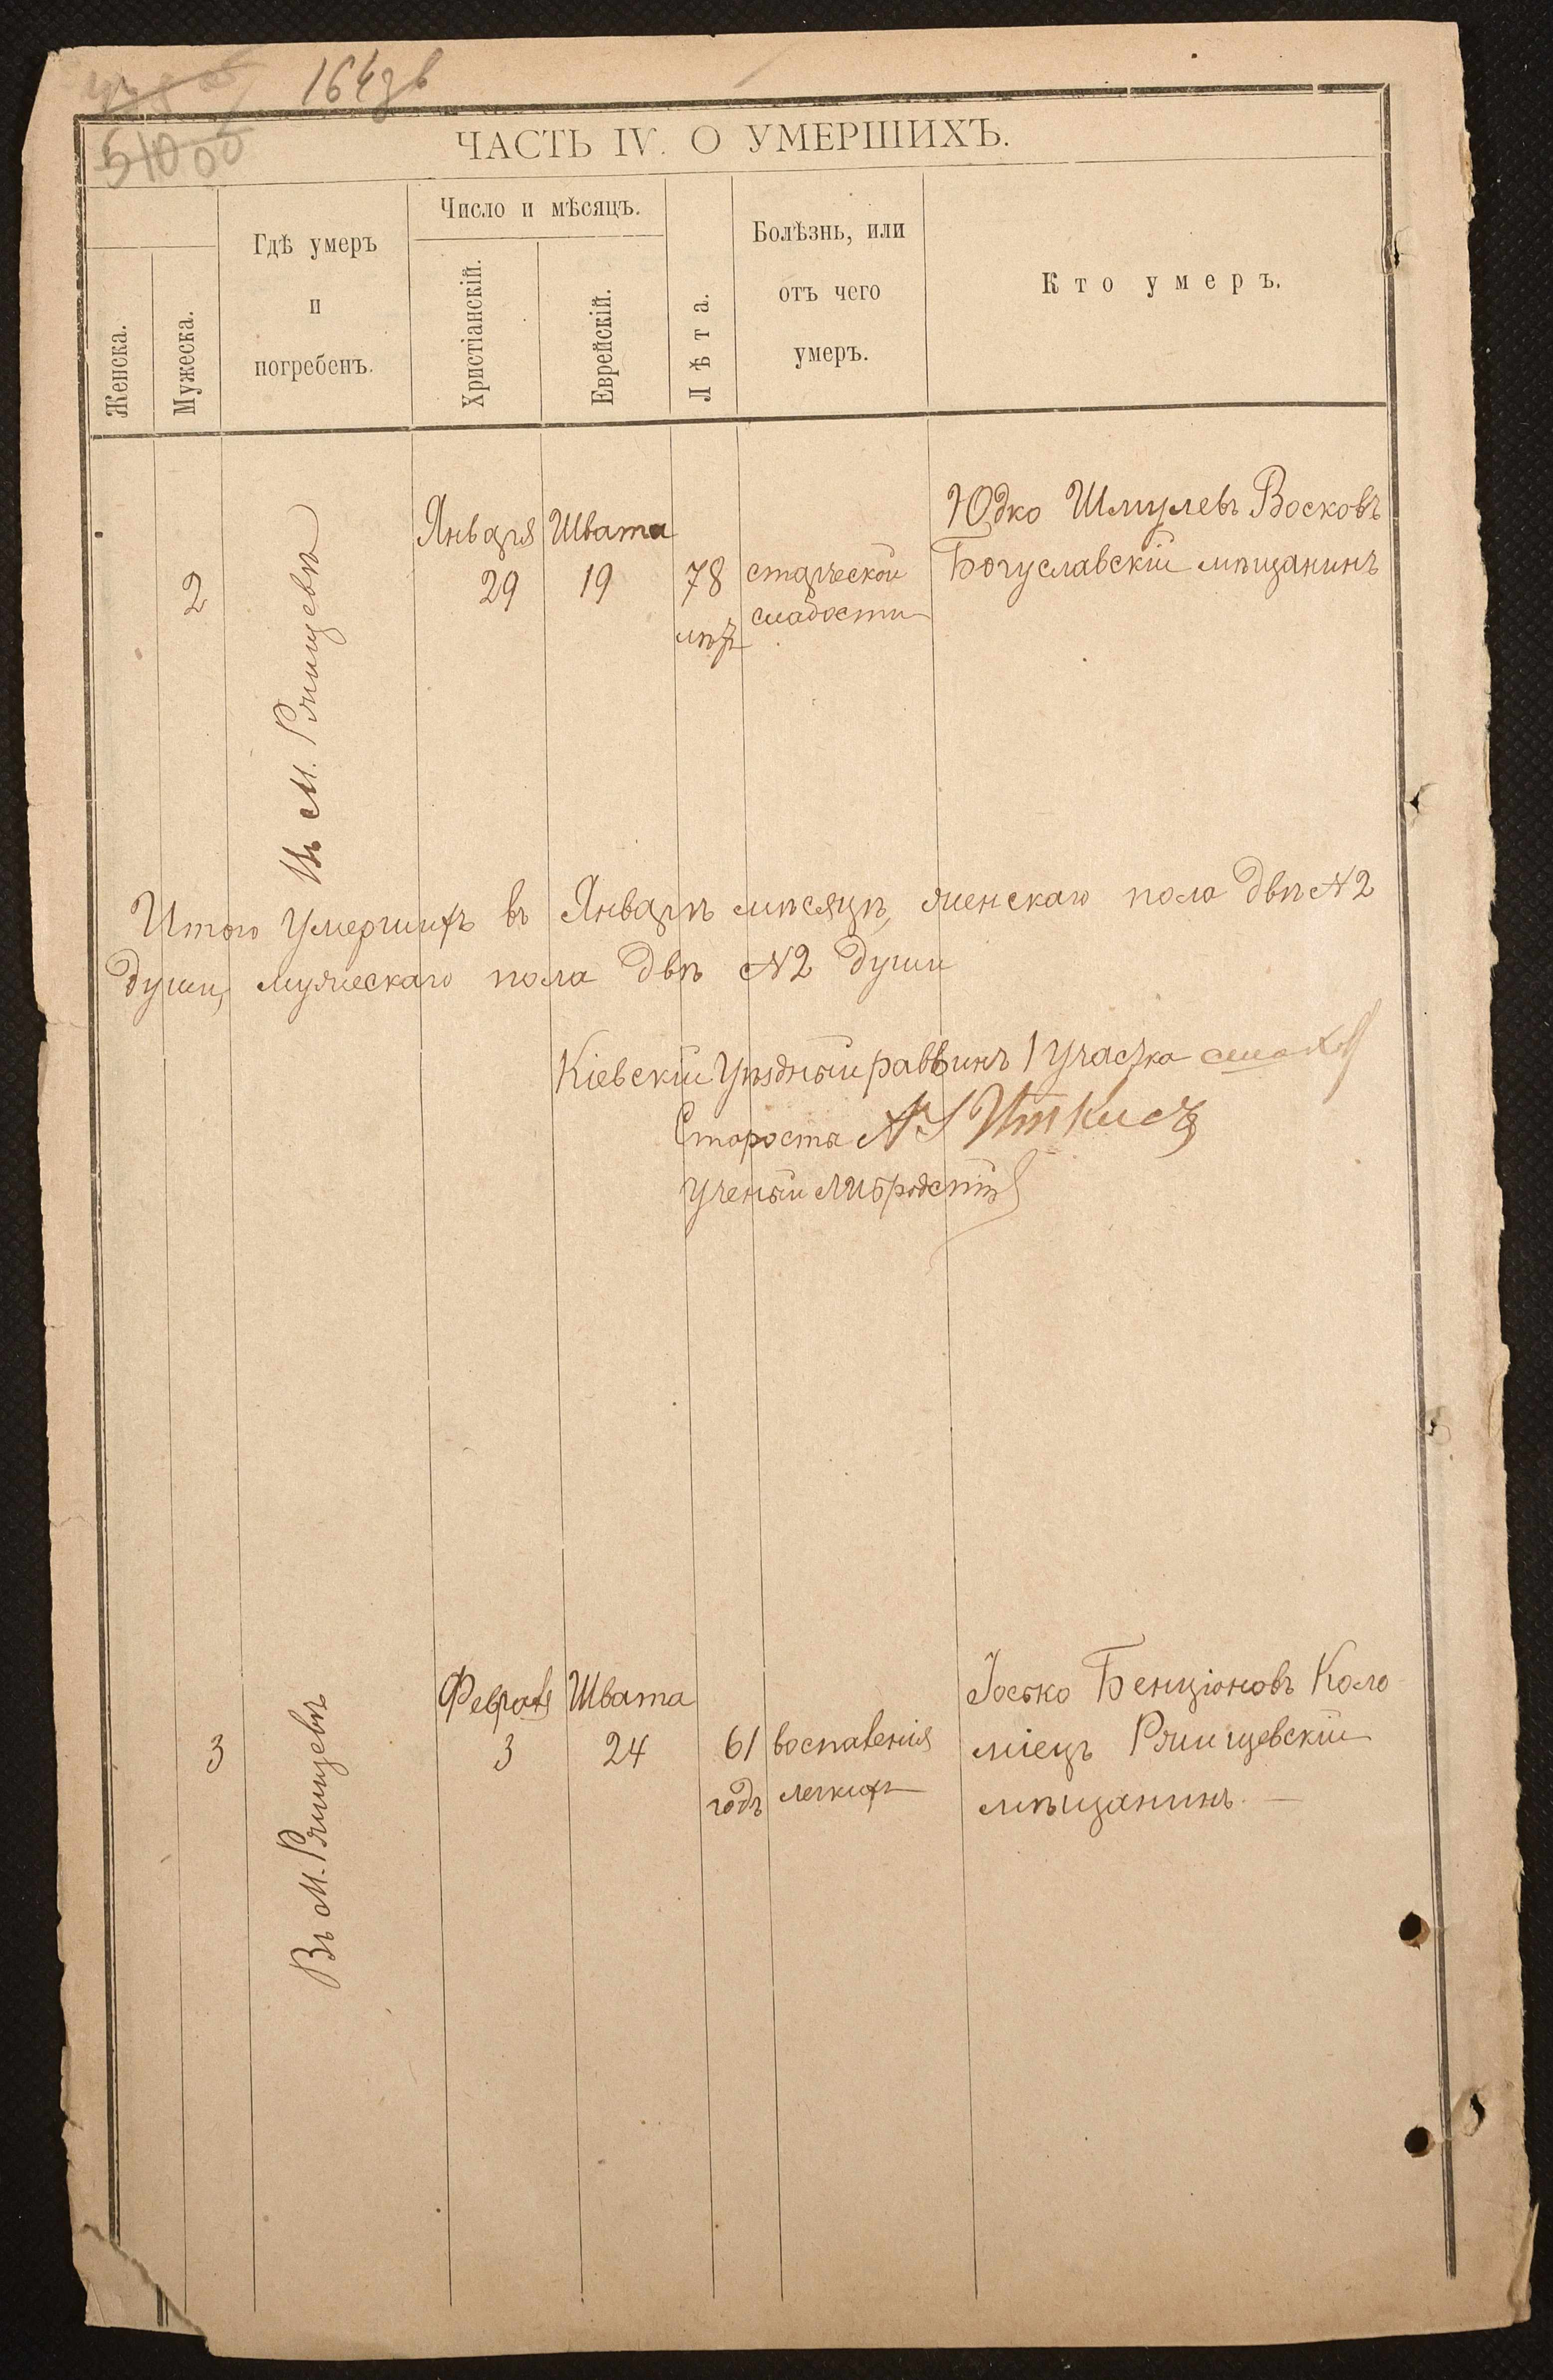 164
51000
ЧАСТЬ IV. О УМЕРШИХЪ.
Женска.
Мужеска.
Гдѣ умеръ
и
погребенъ.
Число и мѣсяцъ.
Христіанскій.
Еврейскій.
Лѣта.
Болѣзнь, или
отъ чего
умеръ.
Кто умеръ.
2
Въ М. Ржищевѣ
Января
29
Швата
19
78
лѣтъ
старческой
слабости
Юдко Шмулевъ Восковъ
Богуславскій мѣщанинъ
Итого умершихъ въ Январѣ мѣсяцѣ, женскаго пола двѣ №2
души, мужескаго пола двѣ №2 души
Кіевскій Уѣздный раввинъ 1 участка
Староста
Ученый
3
Въ М. Ржищевѣ
Февраля
3
Швата
24
61
годъ
воспаленія
легкихъ
Іосько Бенціоновъ Коло
міецъ Ржищевскій
мѣщанинъ. —